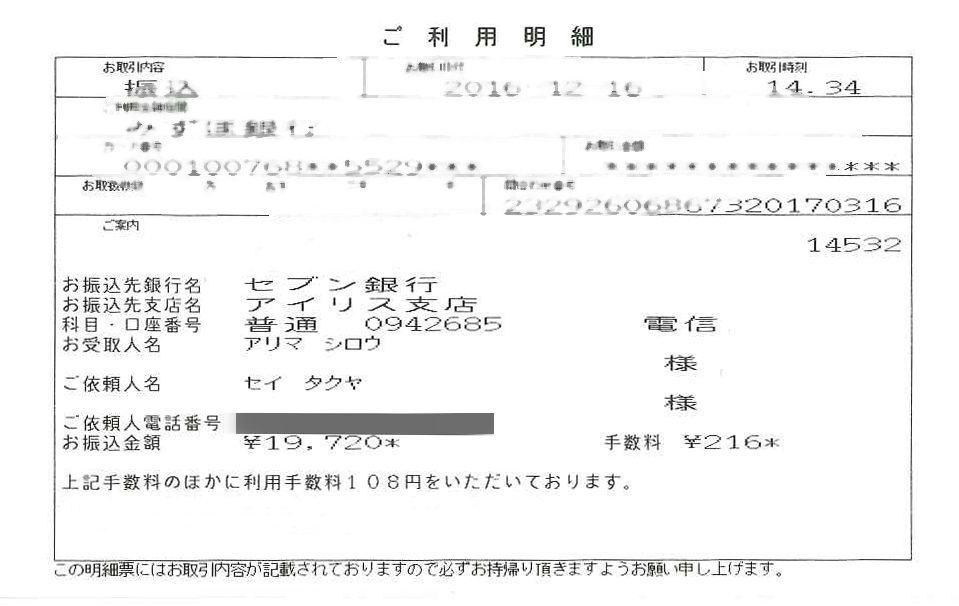 ご利用明細
お取引内容 お取引日付 お取引時刻
振込 2016 12 16 14.34
みずほ銀行
カード番号 お取引金額
000100768**5529*** **************
お取扱 問合わせ番号
23292606867320170316
ご案内
14532
お振込先銀行名 セブン銀行
お振込先支店名 アイリス支店
科目・口座番号 普通 0942685 電信
お受取人名 アリマ シロウ 様
ご依頼人名 セイ タクヤ 様
ご依頼人電話番号
お振込金額 ¥19,720* 手数料 ¥216*
上記手数料のほかに利用手数料108円をいただいております。
この明細票にはお取引内容が記載されておりますので必ずお持帰り頂きますようお願い申し上げます。